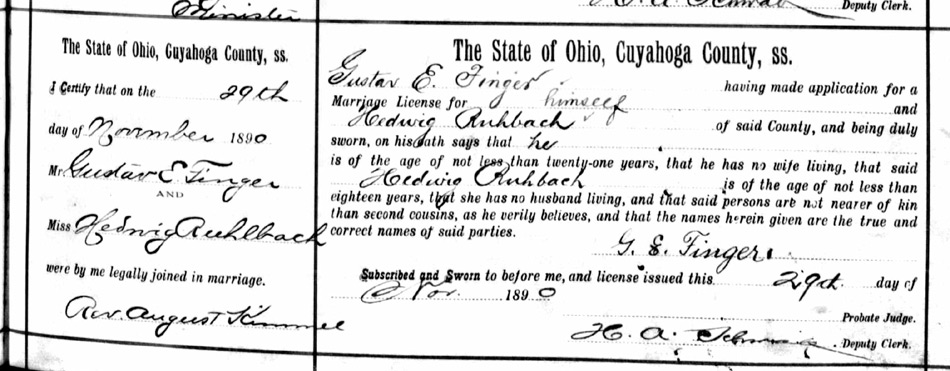 Minister
Deputy Clerk.
The State of Ohio, Cuyahoga County, ss.
I Certify that on the 29th
day of November 1890
Mr Gustav E. Finger
AND
Miss Hedwig Ruhlbach
were by me legally joined in marriage.
Rev. August Kimmel
The State of Ohio, Cuyahoga County, ss.
Gustav E. Finger having made application for a
Marriage License for himself and
Hedwig Ruhbach of said County, and being duly
sworn, on his oath says that he
is of the age of not less than twenty-one years, that he has no wife living, that said
Hedwig Ruhbach is of the age of not less than
eighteen years, that she has no husband living, and that said persons are not nearer of kin
than second cousins, as he verily believes, and that the names herein given are the true and
correct names of said parties.
G. E. Finger
Subscribed and Sworn to before me, and license issued this 29th day of
Nov. 1890
Probate Judge.
H. A. Deputy Clerk.